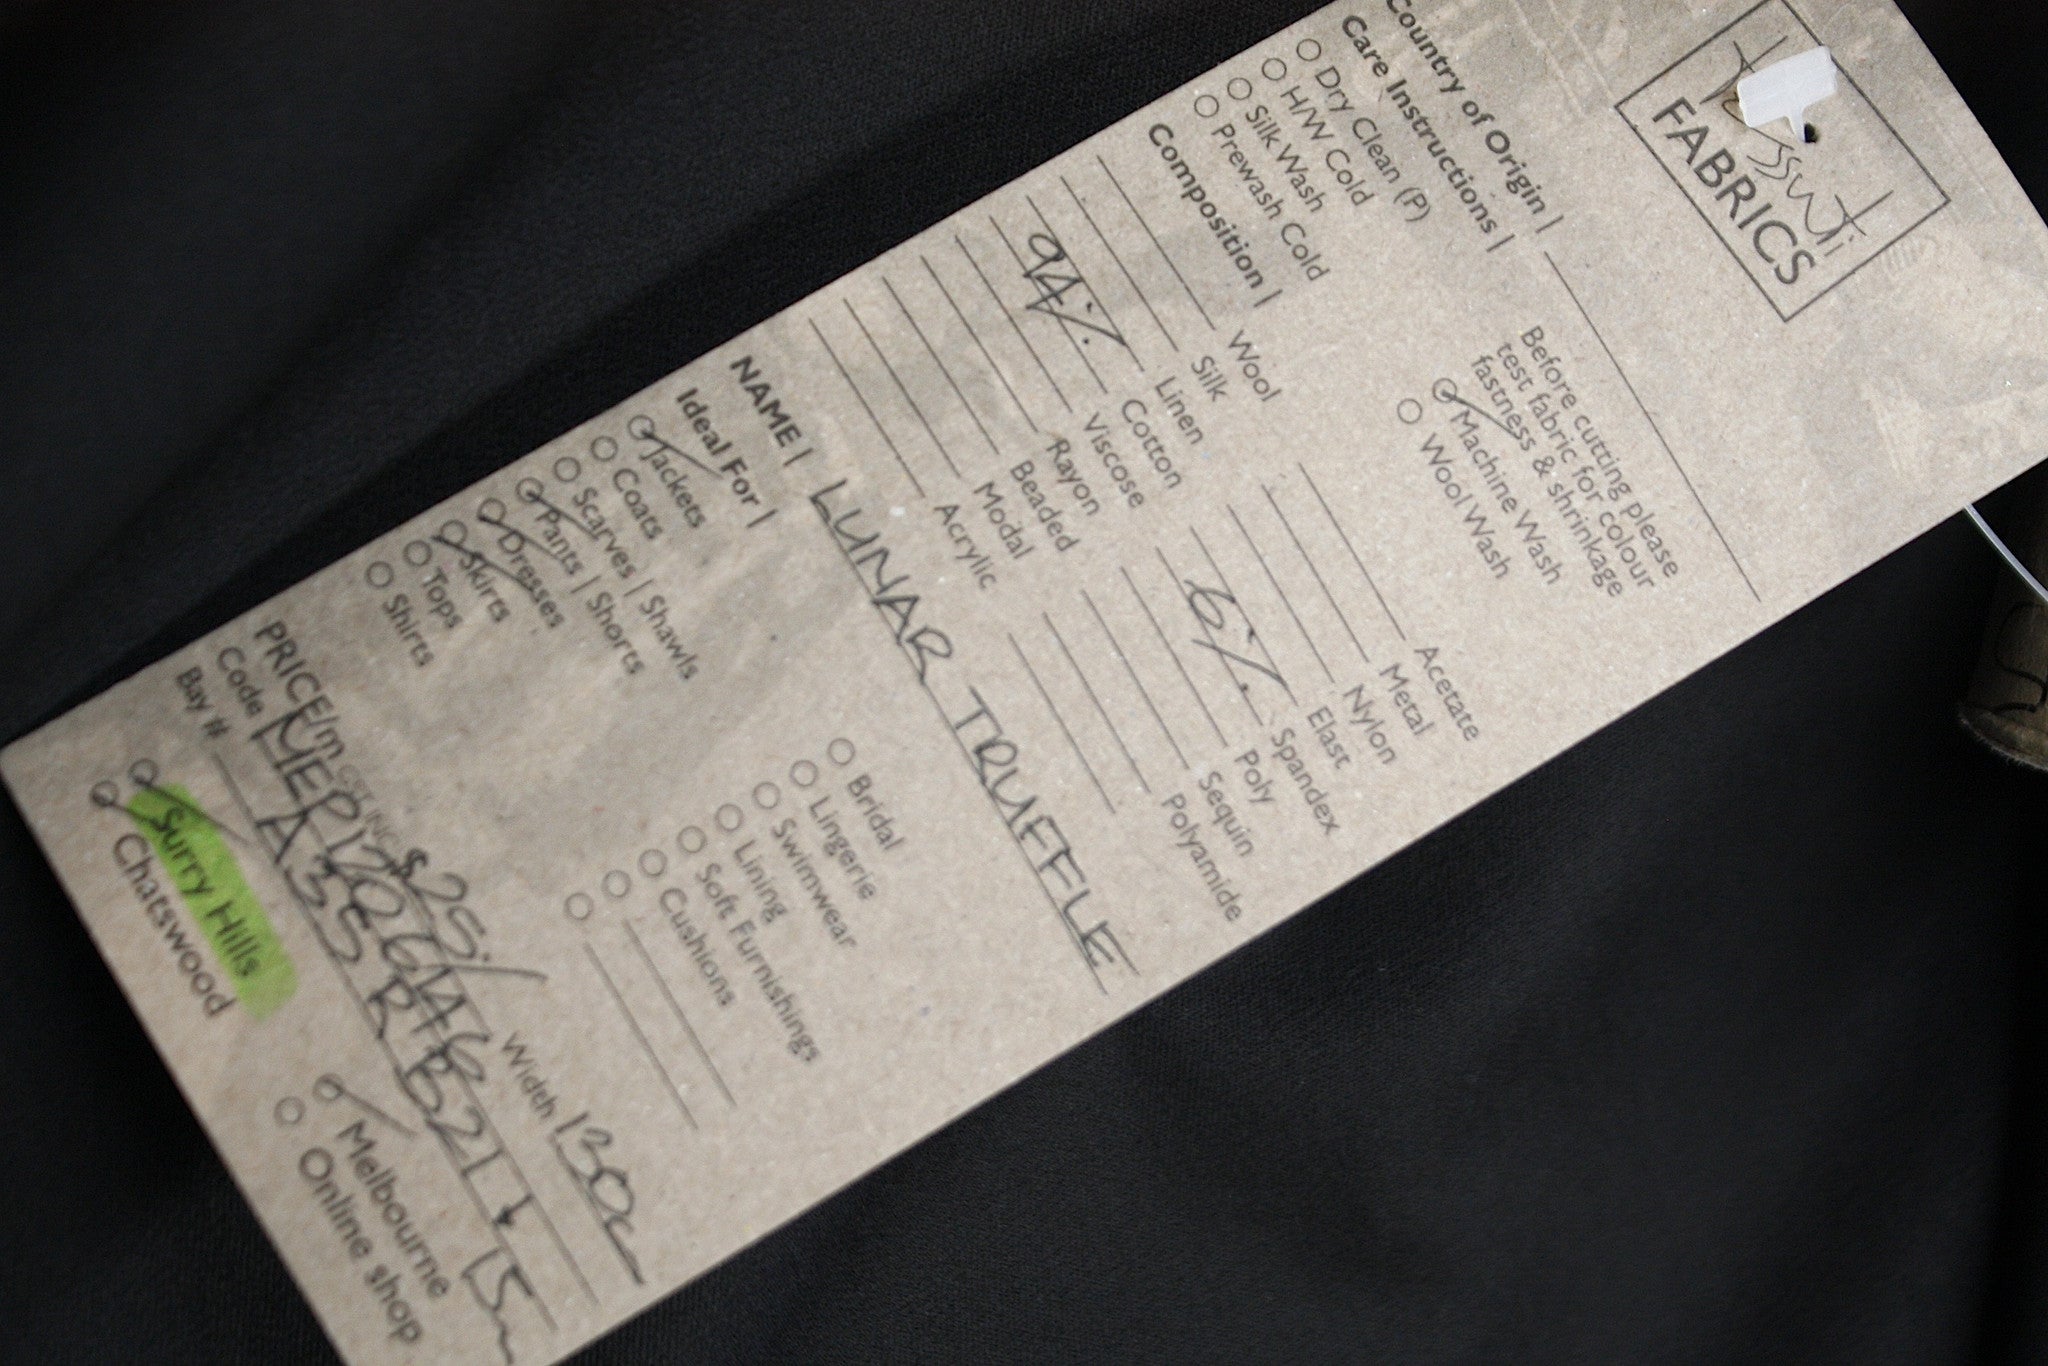 Tessuti
FABRICS
Country of Origin |
Care Instructions |
Before cutting please
test fabric for colour
fastness & shrinkage
Dry Clean (P)
H/W Cold
Silk Wash
Prewash Cold
Machine Wash
Wool Wash
Composition |
Wool
Silk
94% Linen
Cotton
Viscose
Rayon
Beaded
Modal
Acrylic
Acetate
Metal
Nylon
Elast
6% Spandex
Poly
Sequin
Polyamide
NAME | LUNAR TRUFFLE
Ideal For |
Jackets
Coats
Scarves | Shawls
Pants | Shorts
Dresses
Skirts
Tops
Shirts
Bridal
Lingerie
Swimwear
Lining
Soft Furnishings
Cushions
PRICE/m GST INC $25 Width 130c
Code
Bay # A35 R+B21
15m
Surry Hills
Chatswood
Melbourne
Online shop